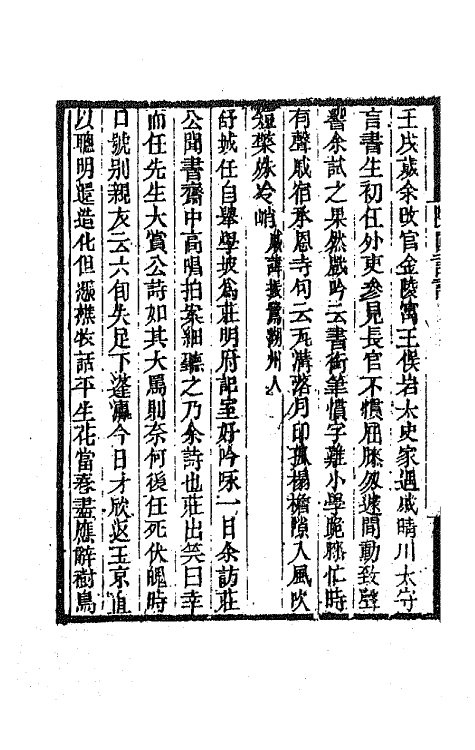 壬戌歲余改官金陵寓王俁岩太史家遇戚晴川太守
言書生初任外吏參見長官不慣屈膝匆遽間動致聲
響余試之果然戲吟云書銜筆慣字難小學跪膝忙時
有聲戚宿承恩寺句云瓦溝落月印孤榻檐隙入風吹
短檠殊冷峭戚諱振鷺湖州人
舒城任自舉學坡爲莊明府記室好吟咏一日余訪莊
公聞書齋中高唱拍案細聽之乃余詩也莊出笑曰幸
而任先生大賞公詩如其大罵則奈何後任死伏魄時
口號别親友云六旬失足下蓬瀛今日才欣返玉京直
以聰明還造化但漲襟袂話平生花當春盡應辭樹鳥